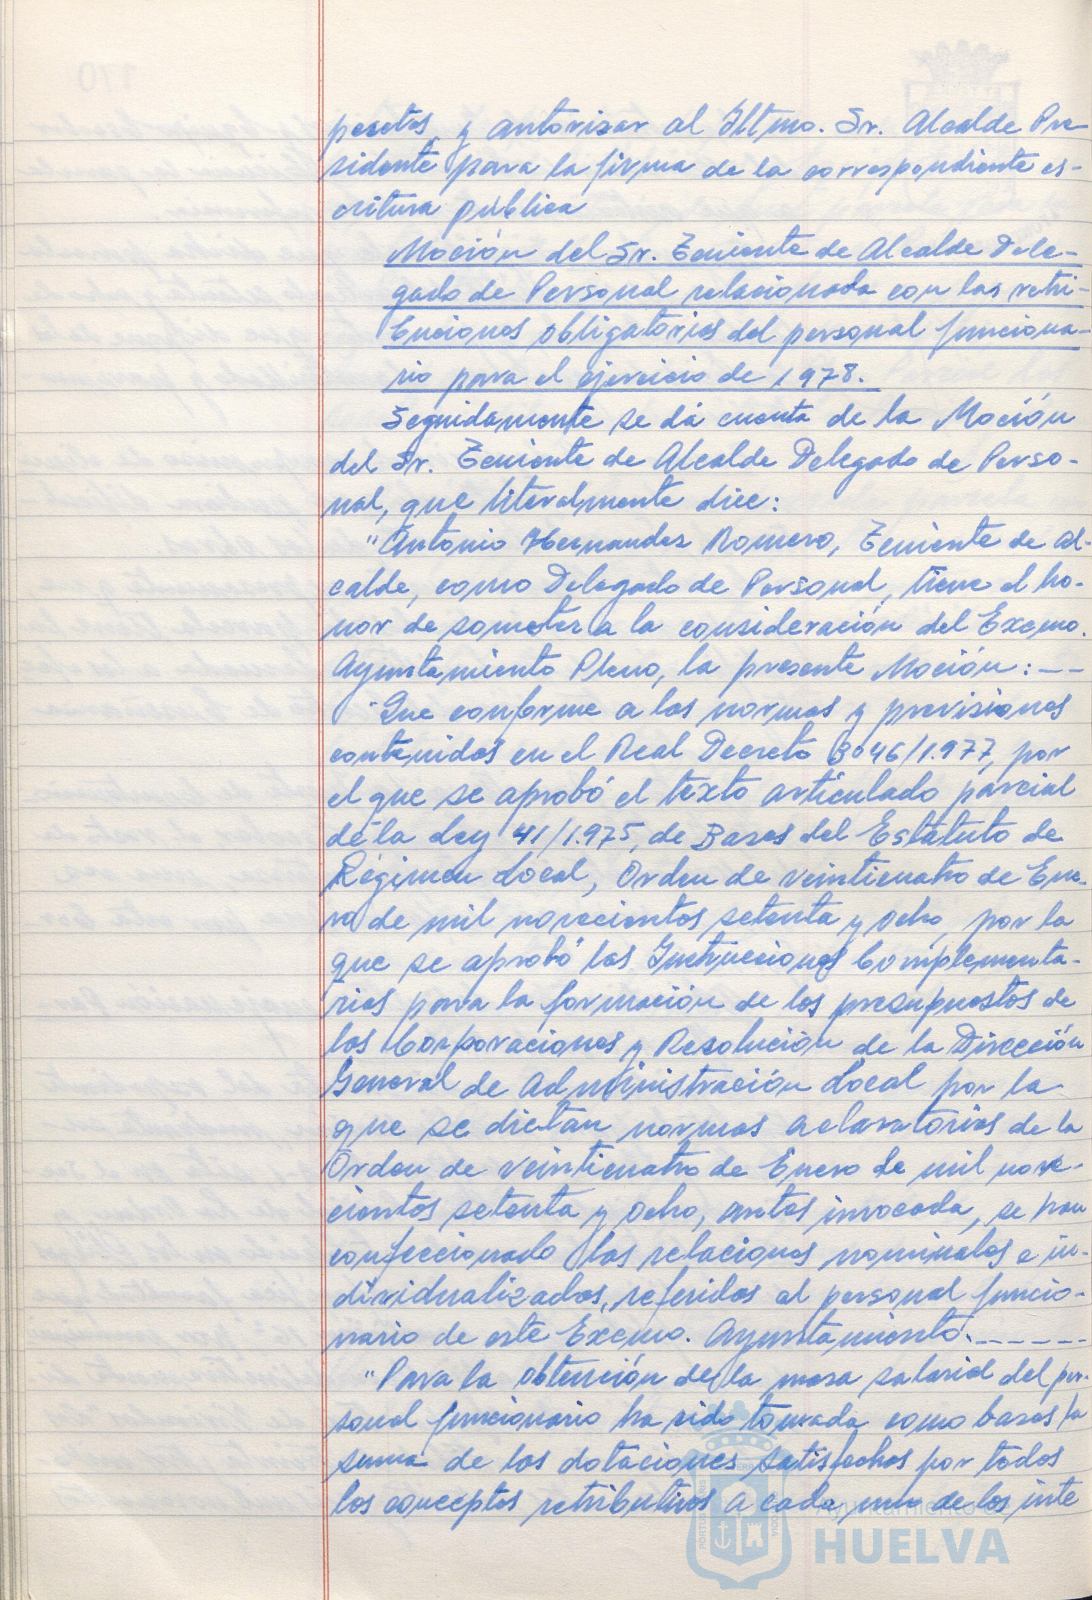 pesetas, y autorizar al Iltmo. Sr. Alcalde Pre-
sidente para la firma de la correspondiente es-
critura pública
Moción del Sr. Teniente de Alcalde Dele-
gado de Personal relacionada con las retri-
buciones obligatorias del personal funciona-
rio para el ejercicio de 1978.
Seguidamente se dá cuenta de la Moción
del Sr. Teniente de Alcalde Delegado de Perso-
nal, que literalmente dice:
"Antonio Hernandez Romero, Teniente de Al-
calde, como Delegado de Personal, tiene el ho-
nor de someter a la consideración del Excmo.
Ayuntamiento Pleno, la presente Moción: - -
"Que conforme a las normas y previsiones
contenidas en el Real Decreto 3046/1.977, por
el que se aprobó el texto articulado parcial
de la Ley 41/1.975, de Bases del Estatuto de
Régimen Local, Orden de veinticuatro de Ene-
ro de mil novecientos setenta y ocho, por la
que se aprobó las Instrucciones Complementa-
rias para la formación de los presupuestos de
las Corporaciones y Resolución de la Dirección
General de Administración Local por la
que se dictan normas aclaratorias de la
Orden de veinticuatro de Enero de mil nove-
cientos setenta y ocho, antes invocada, se han
confeccionado las relaciones nominales e in-
dividualizadas, referidas al personal funcio-
nario de este Excmo. Ayuntamiento. - - - - -
"Para la obtención de la masa salarial del per-
sonal funcionario ha sido tomada como bases la
suma de las dotaciones satisfechas por todos
los conceptos retributivos a cada uno de los inte
Ayuntamiento de
HUELVA